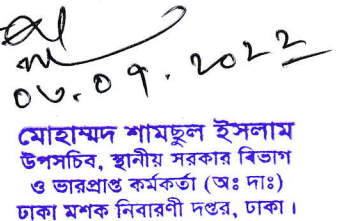 ০৬.০৭.২০২২
মোহাম্মদ শামছুল ইসলাম
উপসচিব, স্থানীয় সরকার বিভাগ
ও ভারপ্রাপ্ত কর্মকর্তা (অঃ দাঃ)
ঢাকা মশক নিবারণী দপ্তর, ঢাকা।